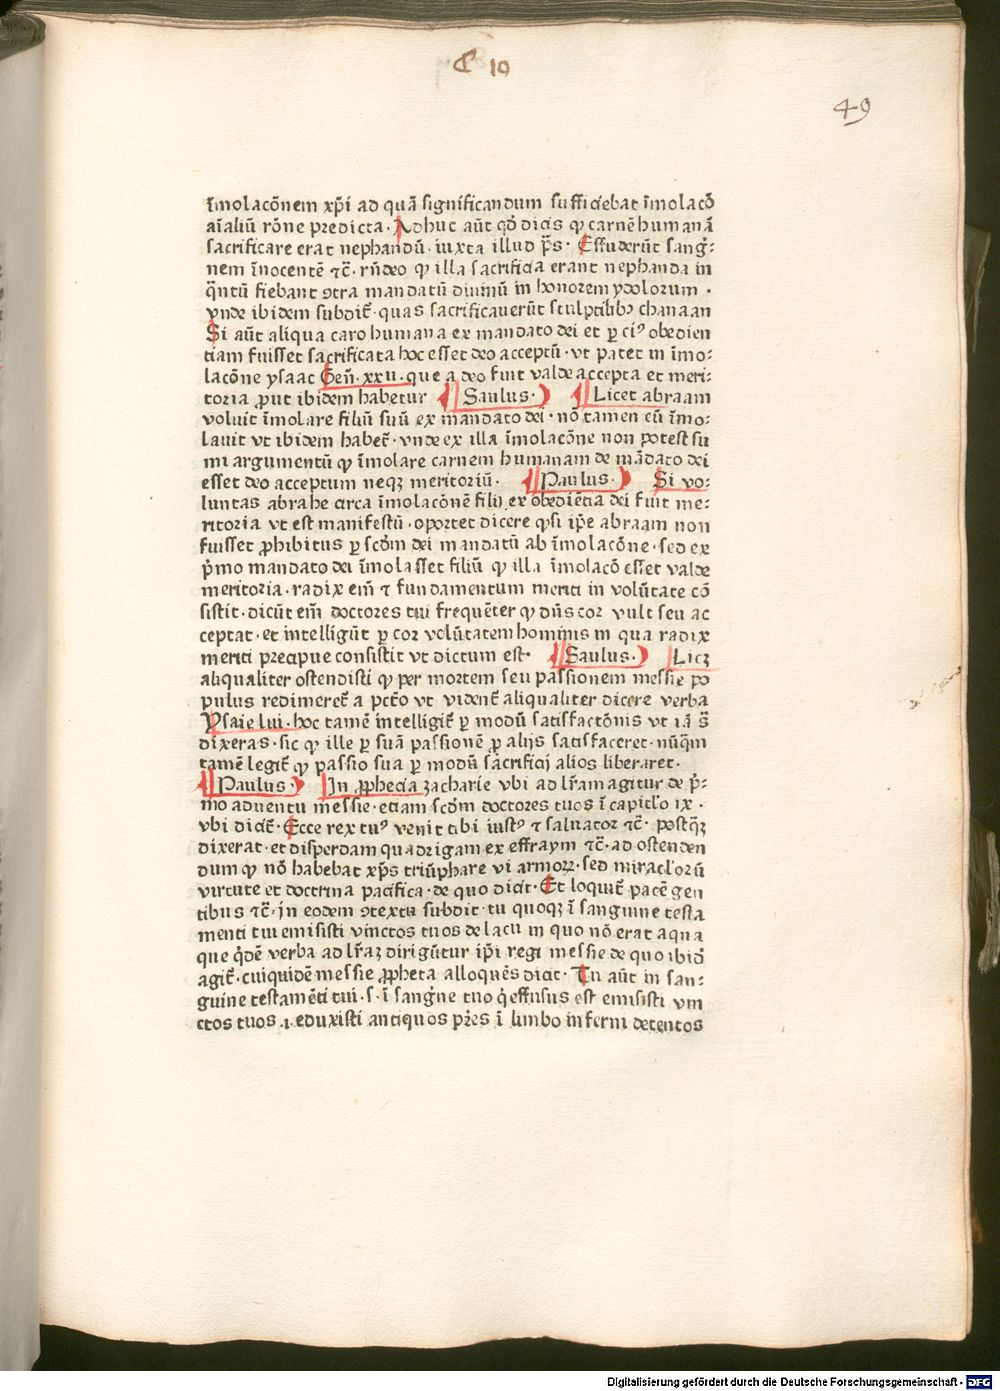 C 10
49
ĩmolacõnem xp̃i ad quã significandum sufficiebat ĩmolacõ
aĩaliũ rõne predicta · Adhuc aũt qd̃ dicis ꝙ carnẽ humanã
sacrificare erat nephandũ · iuxta illud p̃s · Effuderũt sang̃:
nem ĩnocentẽ ⁊c̃ · rñdeo ꝙ illa sacrificia erant nephanda in
q̃ntũ fiebant ꝯtra mandatũ diuinũ in honorem ydolorum ·
vnde ibidem subdit̃ · quas sacrificauerũt sculptilibꝫ chanaan
Si aũt aliqua caro humana ex mandato dei et ꝑ ciꝰ obedien
tiam fuisset sacrificata hoc esset deo acceptũ · vt patet in ĩmo:
lacõne ysaac Geñ · xxii · que a deo fuit valde accepta et meri:
toria ꝓut ibidem habetur ( Saulus · ) Licet abraam
voluit ĩmolare filiũ suũ ex mandato dei · nõ tamen eũ ĩmo:
lauit vt ibidem habet̃ · vnde ex illa ĩmolacõne non potest su
mi argumentũ ꝙ ĩmolare carnem humanam de mãdato dei
esset deo acceptum neqꝫ meritoriũ · ( Paulus · ) Si vo:
luntas abrahe circa ĩmolacõnẽ filij ex obediẽtia dei fuit me:
ritoria vt est manifestũ · oportet dicere ꝙ si ip̃e abraam non
fuisset ꝓhibitus ꝑ scd̃m dei mandatũ ab ĩmolacõne · sed ex
p̃mo mandato dei ĩmolasset filiũ ꝙ illa ĩmolacõ esset valde
meritoria · radix em̃ ⁊ fundamentum meriti in volũtate cõ
sistit · dicũt em̃ doctores tui frequẽter ꝙ dñs cor vult seu ac
ceptat · et intelligũt ꝑ cor volũtatem hominis in qua radix
meriti precipue consistit vt dictum est · ( Saulus · ) Licꝫ
aliqualiter ostendisti ꝙ per mortem seu passionem messie po
pulus redimeret̃ a pctõ vt vident̃ aliqualiter dicere verba
Ysaie liii · hoc tamẽ intelligit̃ ꝑ modũ satisfactõnis vt iã s̃
dixeras · sic ꝙ ille ꝑ suã passionẽ ꝓ alijs satisfaceret · nũq̃m
tamẽ legit̃ ꝙ passio sua ꝑ modũ sacrificij alios liberaret ·
( Paulus · ) In ꝓphecia zacharie vbi ad lr̃am agitur de p̃:
mo aduentu messie · etiam scd̃m doctores tuos ĩ capitl̃o ix ·
vbi dicit̃ · Ecce rex tuꝰ venit tibi iustꝰ ⁊ saluator ⁊c̃ · postq̃ꝫ
dixerat · et disperdam quadrigam ex effraym ⁊c̃ · ad ostenden
dum ꝙ nõ habebat xp̃s triũphare vi armoꝝ · sed miracl̃orũ
virtute et doctrina pacifica · de quo dicit · Et loquit̃ pacẽ gen
tibus ⁊c̃ · in eodem ꝯtextu subdit · tu quoqꝫ ĩ sanguine testa
menti tui emisisti vinctos tuos de lacu in quo nõ erat aqua
que q̃dẽ verba ad lr̃aꝫ dirigũtur ip̃i regi messie de quo ibid̃
agit̃ · cui quidẽ messie ꝓpheta alloquẽs dicit · Tu aũt in san:
guine testamẽti tui · s · ĩ sang̃ne tuo q̃ effusus est emisisti vin
ctos tuos · i · eduxisti antiquos pr̃es ĩ limbo inferni detentos
Digitalisierung gefördert durch die Deutsche Forschungsgemeinschaft · DFG